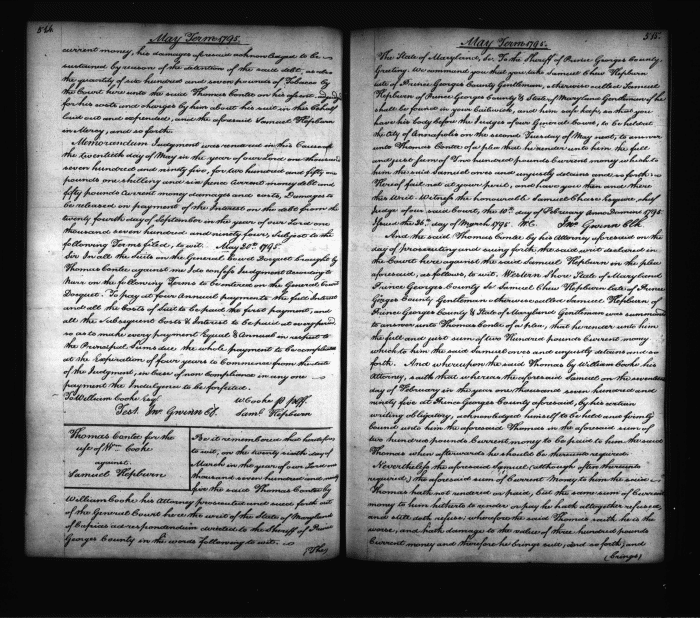 564
May Term 1795.
current money, his damages aforesaid acknowledged to be
sustained by reason of the detention of the said debt, as also
the quantity of six hundred and seven pounds of Tobacco by
the Court here unto the said Thomas Contee on his assent
for his costs and charges by him about his suit in this behalf
laid out and expended, and the aforesaid Samuel Hepburn
in Mercy, and so forth.
Memorandum Judgment was rendered in this Cause
the twentieth day of May in the year of our Lord one thousand
seven hundred and ninety five, for two hundred and fifty one
pounds one shilling and six pence current money debt and
fifty pounds current money damages and costs, Damages to
be released on payment of the Interest on the debt from the
twenty fourth day of September in the year of our Lord one
thousand seven hundred and ninety four, Subject to the
following Terms filed, to wit. May 20th 1795.
Sir In all the Suits on the General Court Docquet brought by
Thomas Contee against me I do confess Judgment according to
Narr on the following Terms to be entered on the General Court
Docquet. To pay at four Annual payments the full Interest
and all the Costs of Suit to be paid the first payment, and
all the Subsequent Costs & Interest to be paid at every
so as to make every payment Equal & Annual in respect to
the Principal Sums due the whole payment to be compleated
at the Expiration of four years to commence from the date
of the Judgment, in Case of non Compliance in any one
payment the Indulgence to be forfeited.
To William Cooke Esqr W Cooke p plff
Test. Jno Gwinn Cl. Saml Hepburn
Thomas Contee for the
use of Wm Cooke
against
Samuel Hepburn
Be it remembered that heretofore
to wit, on the twenty sixth day of
March in the year of our Lord one
thousand seven hundred and ninety
five the said Thomas Contee by
William Cooke his Attorney prosecuted and sued forth out
of the General Court here the writ of the State of Maryland
of Capias ad respondendum directed to the Sheriff of Prince
Georges County in the words following to wit.
(The)
565.
May Term 1795.
The State of Maryland, Sc. To the Sheriff of Prince Georges County
Greeting. We command you that you take Samuel Chew Hepburn
late of Prince Georges County Gentleman, otherwise called Samuel
Hepburn of Prince Georges County & State of Maryland Gentleman if he
shall be found in your bailiwick, and him safe keep, so that you
have his body before the Judges of our General Court, to be held at
the City of Annapolis on the second Tuesday of May next, to answer
unto Thomas Contee of a plea that he render unto him the full
and just sum of Two hundred pounds Current money which to
him the said Samuel owes and unjustly detains and so forth
Hereof fail not at your peril, and have you then and there
this Writ. Witness the honourable Samuel Chase Esquire, chief
Judge of our said Court, the 10th day of February Anno Domini 1795.
Issued the 26th day of March 1795. WC. Jno Gwinn Clk
And the said Thomas Contee by his Attorney aforesaid on the
day of prosecuting and suing forth the said writ declared in
the Court here against the said Samuel Hepburn in the plea
aforesaid, as follows, to wit. Western Shore State of Maryland
Prince Georges County Sc Samuel Chew Hepburn late of Prince
Georges County Gentleman otherwise called Samuel Hepburn of
Prince Georges County & State of Maryland Gentleman was summoned
to answer unto Thomas Contee of a plea, that he render unto him
the full and just sum of Two Hundred pounds Current money
which to him the said Samuel owes and unjustly detains and so
forth. And whereupon the said Thomas by William Cooke his
Attorney, saith that whereas the aforesaid Samuel on the seventeenth
day of February in the year one thousand seven hundred and
ninety five at Prince Georges County aforesaid, by his certain
writing obligatory, acknowledged himself to be held and firmly
bound unto him the aforesaid Thomas in the aforesaid sum of
two hundred pounds Current money to be paid to him the said
Thomas when afterwards he should be thereunto required.
Nevertheless the aforesaid Samuel (although often thereunto
required) the aforesaid sum of Current Money to him the said
Thomas hath not rendered or paid, but the same sum of Current
money to him hitherto to render or pay he hath altogether refused
and still doth refuse, wherefore the said Thomas saith he is the
worse and hath damage to the value of three hundred pounds
Current money and therefore he brings suit, and so forth, and
(brings)